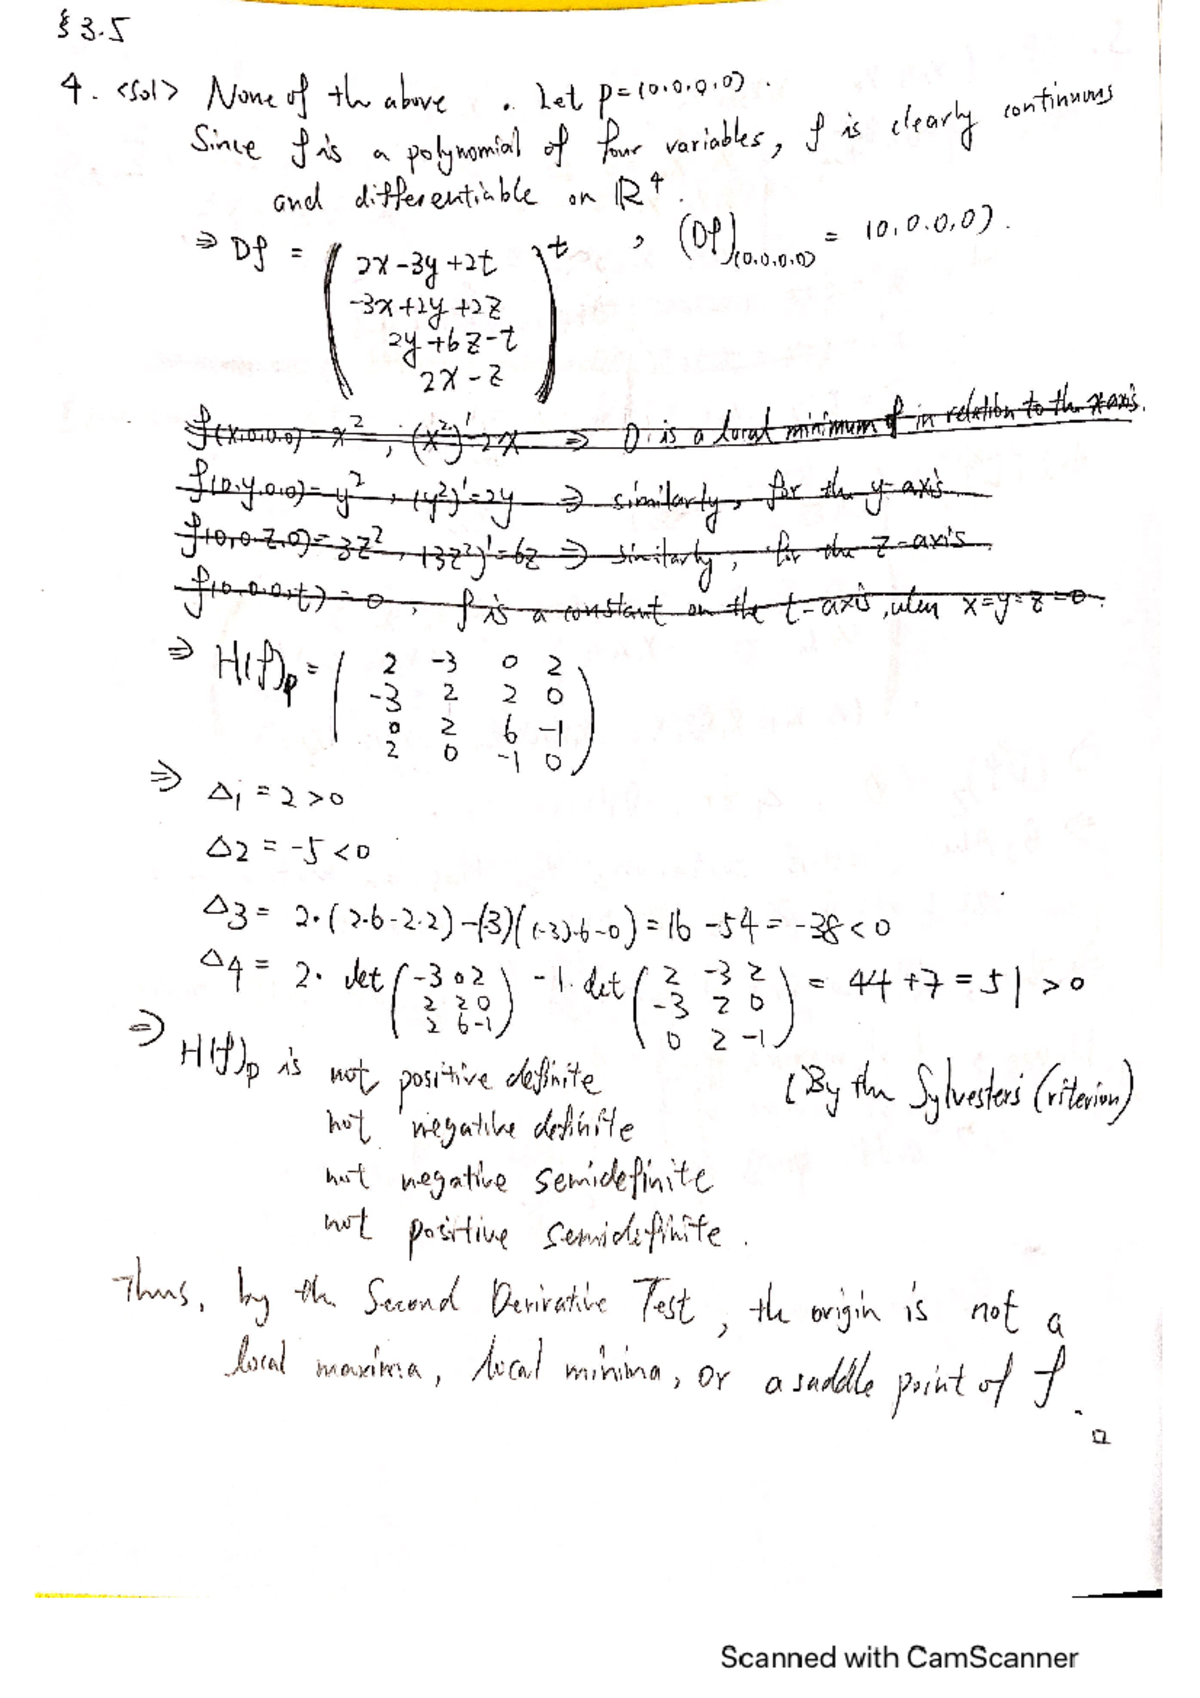 §3.5
4. <sol> None of the above. Let p=(0,0,0,0).
Since f is a polynomial of four variables, f is clearly continuous
and differentiable on ℝ⁴.
⇒ Df = ( 2x-3y+2t
-3x+2y+2z
2y+6z-t
2x-z )ᵗ , (Df)(0,0,0,0) = (0,0,0,0).
f(x,0,0,0)=x², (x²)'=2x ⇒ 0 is a local minimum of f in relation to the x-axis.
f(0,y,0,0)=y², (y²)'=2y ⇒ similarly, for the y-axis.
f(0,0,z,0)=3z², (3z²)'=6z ⇒ similarly, for the z-axis.
f(0,0,0,t)=0, f is a constant on the t-axis, when x=y=z=0.
⇒ H(f)p = ( 2 -3 0 2
-3 2 2 0
0 2 6 -1
2 0 -1 0 )
⇒ Δ1 = 2 >0
Δ2 = -5 <0
Δ3 = 2·(2·6-2·2)-(-3)((-3)·6-0) = 16-54 = -38 <0
Δ4 = 2· det ( -3 0 2
2 2 0
2 6 -1 ) - 1· det ( 2 -3 2
-3 2 0
0 2 -1 ) = 44+7 = 51 >0
⇒ H(f)p is not positive definite (By the Sylvester's Criterion)
not negative definite
not negative semidefinite
not positive semidefinite.
Thus, by the Second Derivative Test, the origin is not a
local maxima, local minima, or a saddle point of f.
□
Scanned with CamScanner